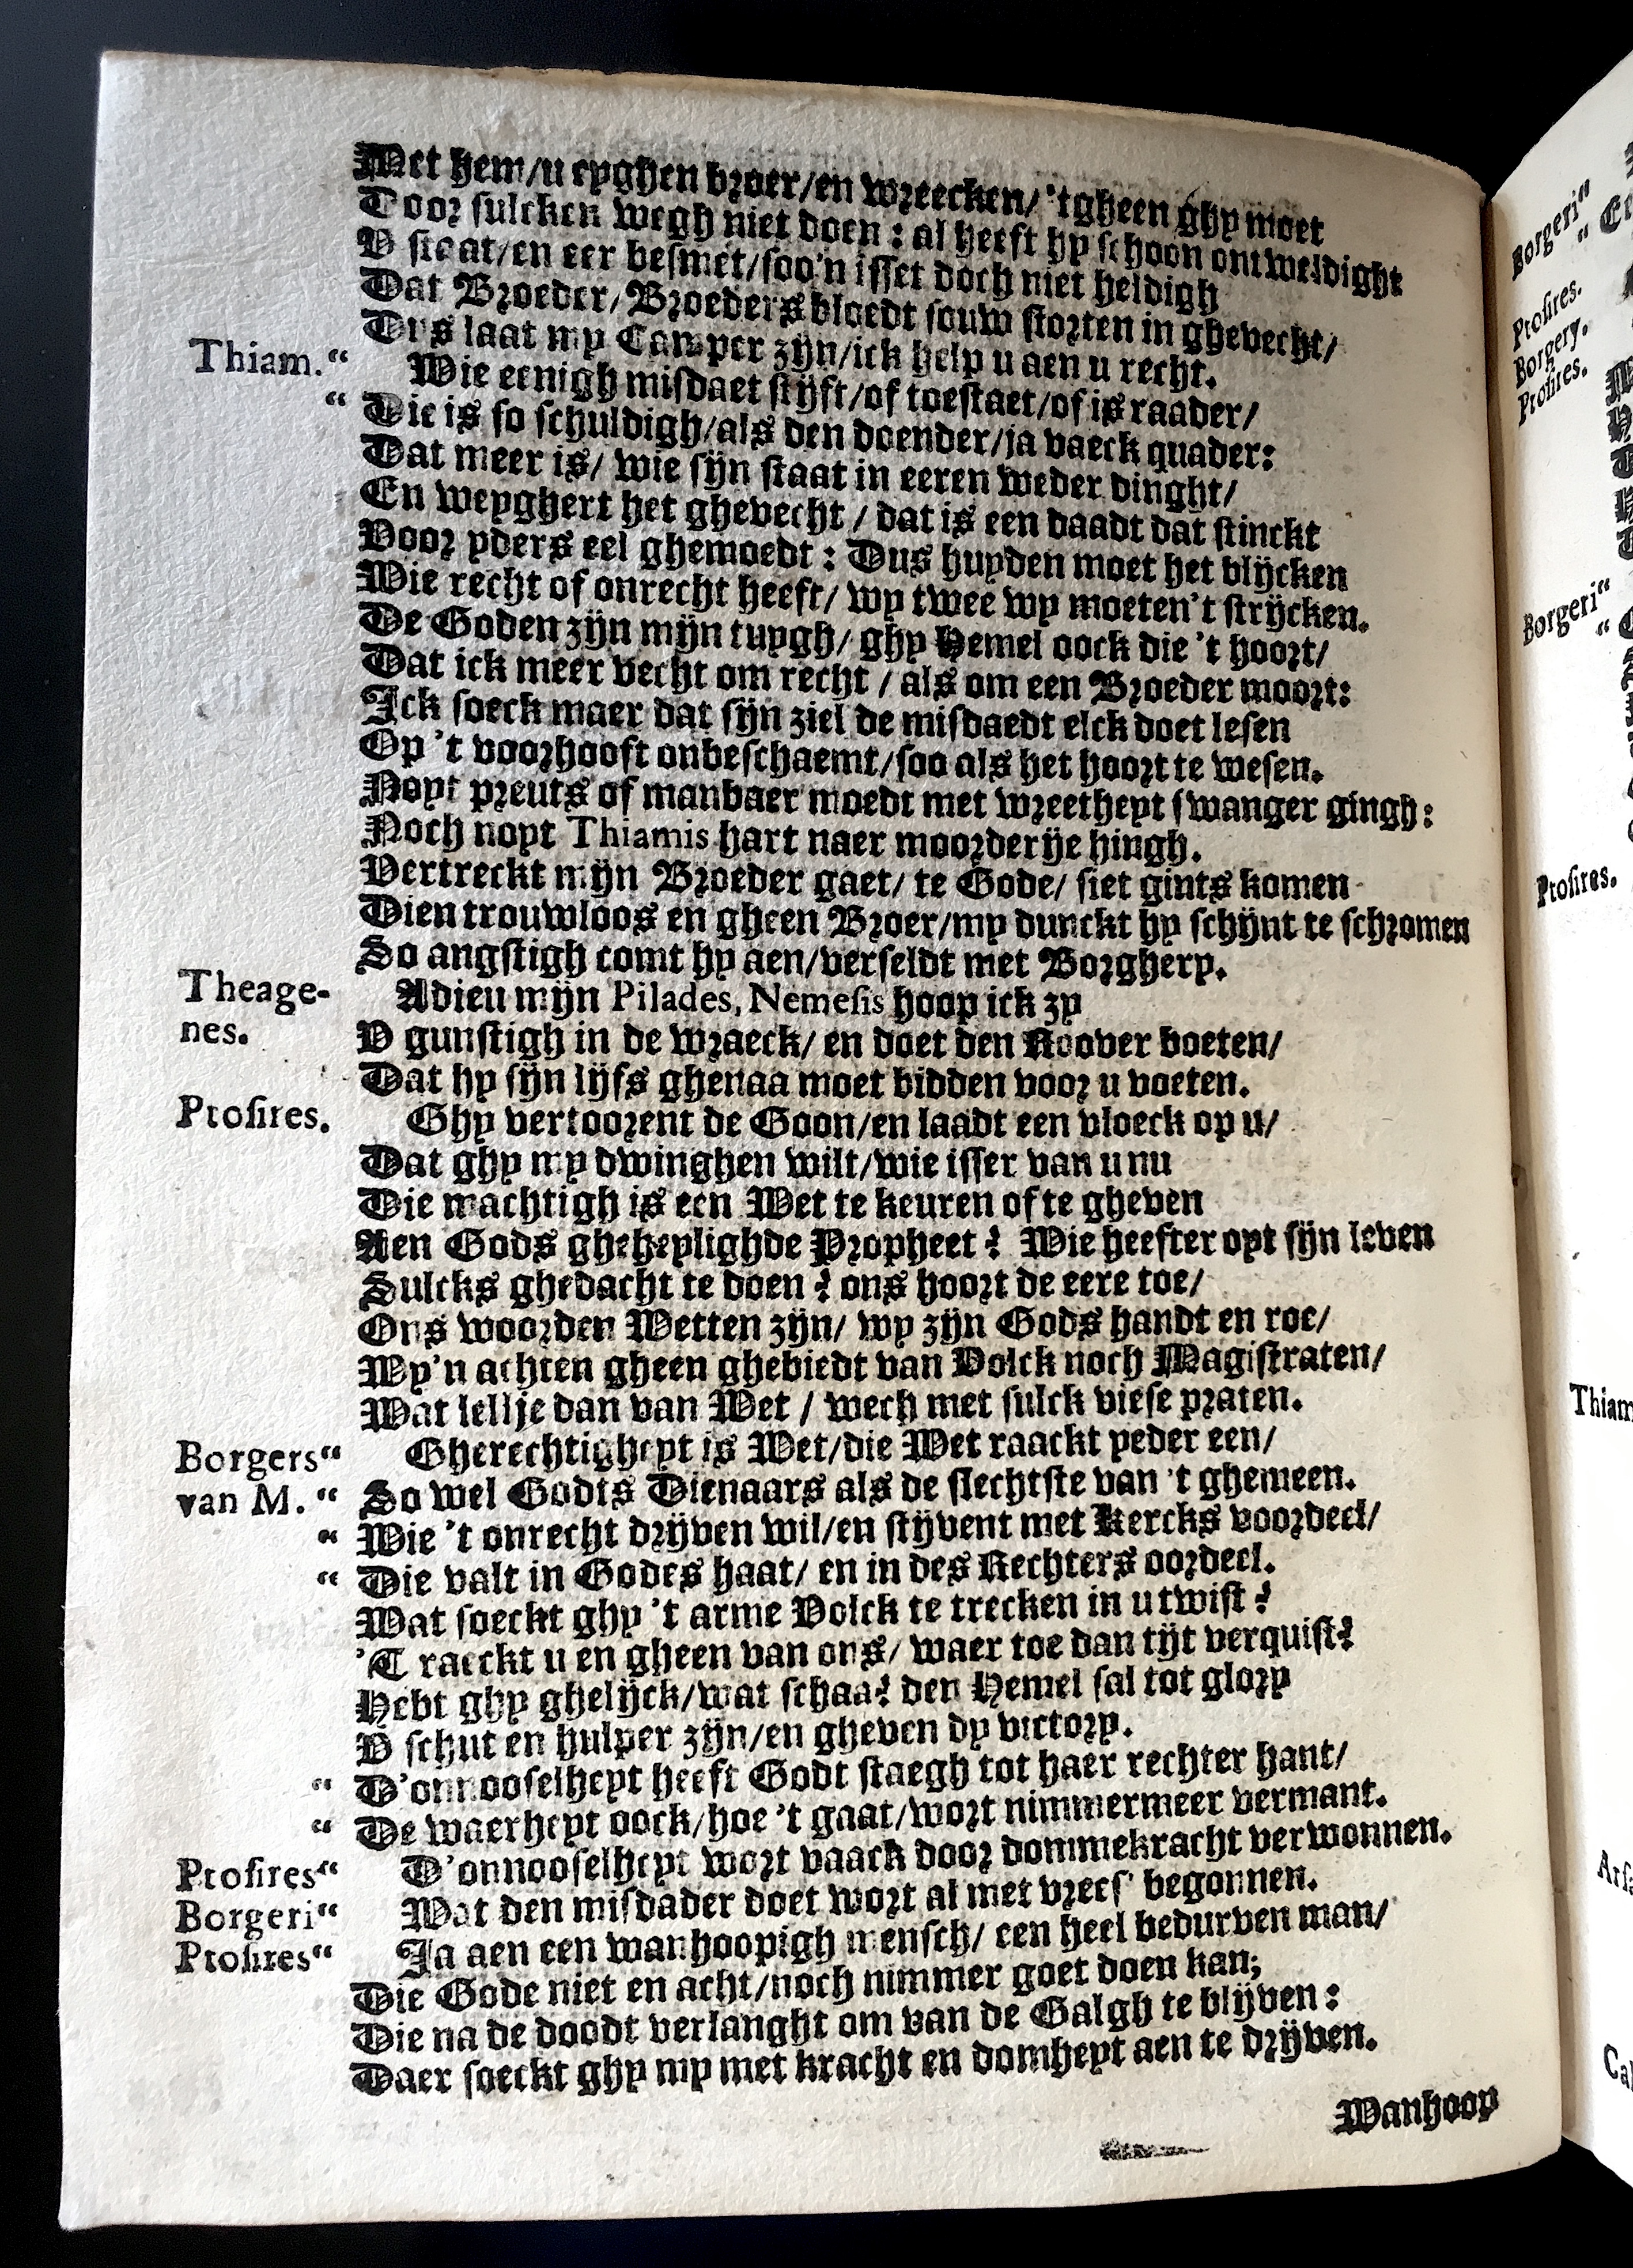 Met hem/u eyghen broer/en wreecken/ 'tgheen ghy moet
Door sulcken wegh niet doen : al heeft hy schoon ontweldight
V staat/en eer besmet/soo'n isset doch niet heldigh
Dat Broeder/Broeders bloedt souw storten in ghevecht/
Dus laat my Camper zijn/ick help u aen u recht.
Thiam.“ Wie eenigh misdaet stijft/of toestaet/of is raader/
“ Die is so schuldigh/als den doender/ja vaeck quader:
Dat meer is/ wie sijn staat in eeren weder dinght/
En weyghert het ghevecht / dat is een daadt dat stinckt
Voor yders eel ghemoedt : Dus huyden moet het blijcken
Wie recht of onrecht heeft/ wy twee wy moeten't strijcken.
De Goden zijn mijn tuygh/ ghy Hemel oock die 't hoort/
Dat ick meer vecht om recht / als om een Broeder moort:
Ick soeck maer dat sijn ziel de misdaedt elck doet lesen
Op 't voorhooft onbeschaemt/soo als het hoort te wesen.
Noyt preuts of manbaer moedt met wreetheyt swanger gingh:
Noch noyt Thiamis hart naer moorderije hingh.
Vertreckt mijn Broeder gaet/ te Gode/ siet gints komen
Dien trouwloos en gheen Broer/my dunckt hy schijnt te schromen
So angstigh comt hy aen/verseldt met Borghery.
Theage- Adieu mijn Pilades, Nemesis hoop ick zy
nes. V gunstigh in de wraeck/ en doet den Roover boeten/
Dat hy sijn lijfs ghenaa moet bidden voor u voeten.
Ptosires. Ghy vertoorent de Goon/en laadt een vloeck op u/
Dat ghy my dwinghen wilt/wie isser van u nu
Die machtigh is een Wet te keuren ofte gheven
Aen Gods gheheylighde Propheet? Wie heefter oyt sijn leven
Sulcks ghedacht te doen? ons hoort de eere toe/
Ons woorden Wetten zijn/ wy zijn Gods handt en roe/
Wy'n achten gheen ghebiedt van Volck noch Magistraten/
Wat lellje dan van Wet / wech met sulck viese praten.
Borgers“ Gherechtigheyt is Wet/die Wet raackt yeder een/
van M. “ So wel Godts Dienaars als de slechtste van 't ghemeen.
“ Wie 't onrecht drijven wil/en stijvent met Kercks voordeel/
“ Die valt in Godes haat/ en in des Rechters oordeel.
Wat soeckt ghy 't arme Volck te trecken in u twist?
'T raeckt u en gheen van ons/ waer toe dan tijt verquist?
Hebt ghy ghelijck/wat schaa? den Hemel sal tot glory
V schut en hulper zijn/en gheven dy victory.
“ D'onnooselheyt heeft Godt staegh tot haer rechter hant/
“ De waerheyt oock/hoe 't gaat/wort nimmermeer vermant.
Ptosires“ D'onnooselheyt wort vaack door dommekracht verwonnen.
Borgeri“ Wat den misdader doet wort al met vrees' begonnen.
Ptosires“ Ja aen een wanhoopigh mensch/ een heel bedurven man/
Die Gode niet en acht/noch nimmer goet doen kan;
Die na de doodt verlanght om van de Galgh te blijven :
Daer soeckt ghy my met kracht en domheyt aen te drijven.
Wanhoop
Borgeri“
“
Ptosires.
Borgery.
Ptosires.
Borgeri“
“
Ptosires.
Thiam